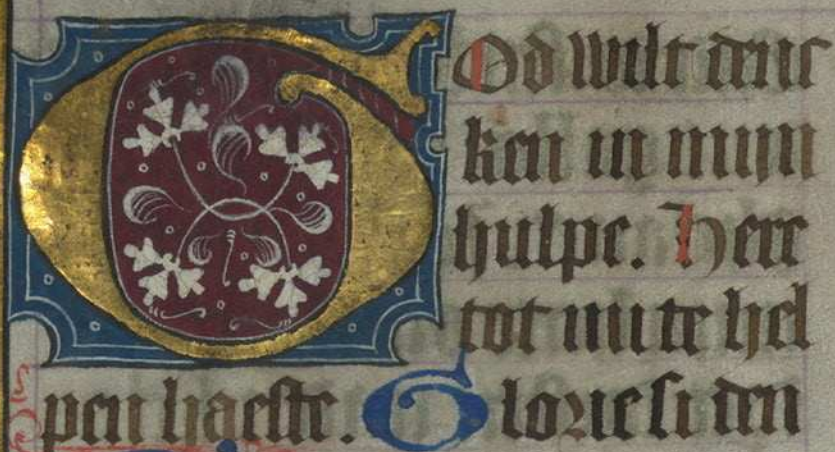 GOd wilt denc
ken in mijn
hulpe. Here
tot mi te hel
pen haeste. Glorie si den